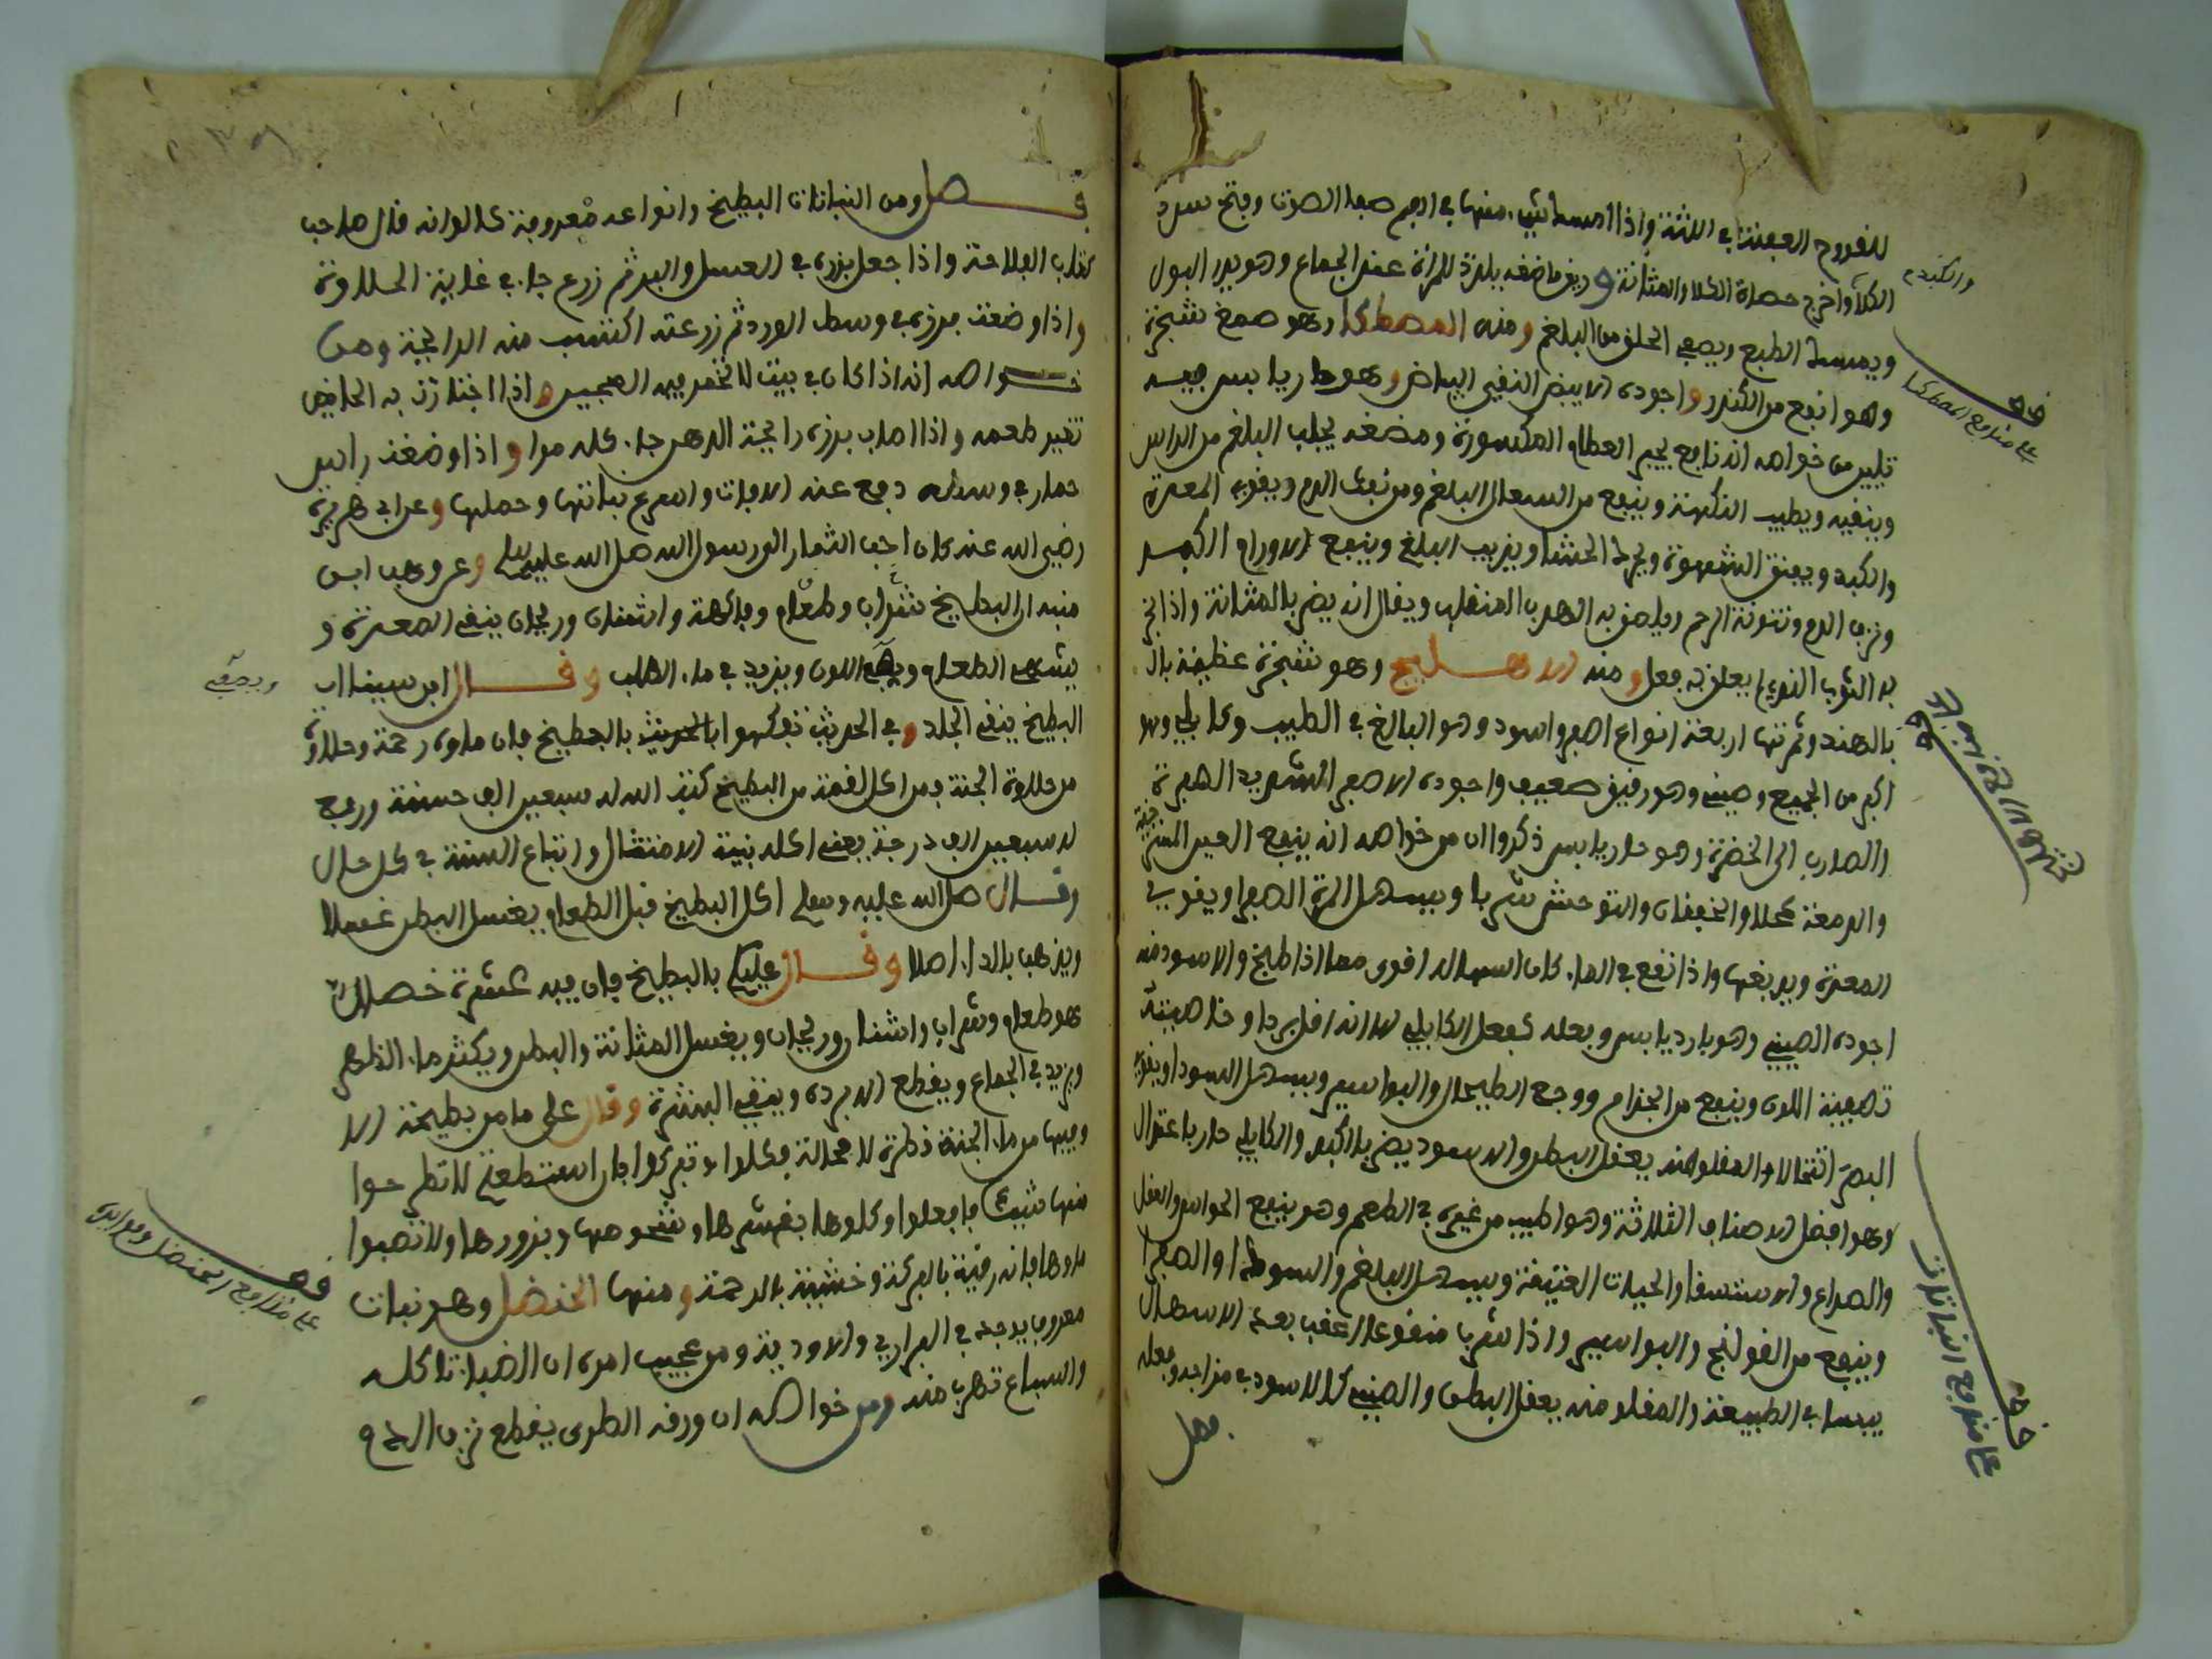 للقروح العفنة في اللثة واذا امسك شيء منها في الفم صفا الصوت وفتح سدد
الكلا واخرج حصاة الكلا والمثانة وريق ماضغه يلذذ للمراة عند الجماع وهو يدر البول
والكبد
ويمسك الطبع ويصفي الحلق من البلغم ومنه المصطكا وهو صمغ شجرة
وهو انفع من الكندر واجوده الابيض النقي البياض وهو حار يابس فيه
قف على منافع المصطكا
تليين من خواصه انه نافع لجبر العظام المكسورة ومضغه يجلب البلغم من الراس
وينقيه ويطيب النكهة وينفع من السعال البلغم ومن نفث الدم ويقوي المعدة
والكبد ويفتق الشهوة ويحرك الجشا ويذيب البلغم وينفع الاورام الكبد
ونزف الدم ونتونة الرحم ويلصق به الهدب المنقلب ويقال انه يضر بالمثانة واذا بخر
به الثوب النقي لم يعلق به قمل ومنه الاهليلج وهو شجرة عظيمة
بالهند وثمرتها اربعة انواع اصفر واسود وهو البالغ في الطيب وكابلي وهو
اكبر من الجميع وصيني وهو رقيق ضعيف واجوده الاصفر الشديد الصفرة
الضارب الى الخضرة وهو حار يابس ذكروا ان من خواصه انه ينفع العين المسترخية
والدمعة كحلا والخفقان والتوحش شربا ويسهل المرة الصفرا ويقوي
المعدة ويدبغها واذا نقع في الماء كان اسهاله اقوى مما اذا طبخ والاسود منه
اجوده الصيني وهو بارد يابس وفعله كفعل الكابلي الا انه اقل بردا وخاصيته
تصفية اللون وينفع من الجذام ووجع الطحال والبواسير ويسهل السودا ويقوي
البصر اكتحالا والمقلو منه يعقل البطن والاسود يضر بالكبد والكابلي حار باعتدال
وهو افضل الاصناف الثلاثة وهو اطيب من غيره في الطعم وهو ينفع الحواس والعقل
والصداع والاستسقا والحميات العتيقة ويسهل البلغم والسودا والصفرا
وينفع من القولنج والبواسير واذا شرب منقوعا اعقب بعد الاسهال
يبسا في الطبيعة والمقلو منه يعقل البطن والصيني كالاسود في مزاجه وفعله
قف على منافع النباتات
فصل
فصل ومن النباتات البطيخ وانواعه معروفة كالوانه قال صاحب
كتاب الفلاحة واذا جعل بزره في العسل واللبن ثم زرع جاء في غاية الحلاوة
واذا وضعت بزره في وسط الورد ثم زرعته اكتسب منه الرائحة ومن
خواصه انه اذا كان في بيت لا يختمر فيه العجين واذا اجتازت به الحائض
تغير طعمه واذا اصاب بزره رائحة الدهن جاء كله مرا واذا وضعت راس
حمار في وسطه دفع عنه الافات واسرع نباتها وحملها وعن ابي هريرة
رضي الله عنه كان احب الثمار الى رسول الله صلى الله عليه وسلم وعن وهب ابن
منبه ان البطيخ شراب وطعام وفاكهة واشنان وريحان ينقي المعدة و
يشهي الطعام ويصفي اللون ويزيد في ماء الصلب وقال ابن سينا ان
ويصفي
البطيخ ينقي الجلد وفي الحديث تفكهوا بالبطيخ فان ماءه رحمة وحلاوته
من حلاوة الجنة ومن اكل لقمة من البطيخ كتب الله له سبعين الف حسنة ورفع
له سبعين الف درجة يعني اكله بنية الامتثال واتباع السنة في كل حال
وقال صلى الله عليه وسلم اكل البطيخ قبل الطعام يغسل البطن غسلا
ويذهب بالداء اصلا وقال عليكم بالبطيخ فان فيه عشرة خصال
هو طعام وشراب واشنان وريحان ويغسل المثانة والبطن ويكثر ماء الظهر
ويزيد في الجماع ويقطع الابردة وينقي البشرة وقال علي ما من بطيخة الا
وفيها من ماء الجنة قطرة لا محالة فكلوا وتبركوا فان استطعتم لا تطرحوا
منها شيئا فافعلوا وكلوها بقشرها وشحومها وبزورها ولا تصبوا
ماءها فانه رقية بالبركة وخشية بالرحمة ومنها الحنضل وهو نبات
قف على منافع الحنضل وفوائده
معروف يوجد في البراري والاودية ومن عجيب امره ان الضباء تاكله
والسباع تهرب منه ومن خواصه ان ورقه الطري يقطع نزف الدم